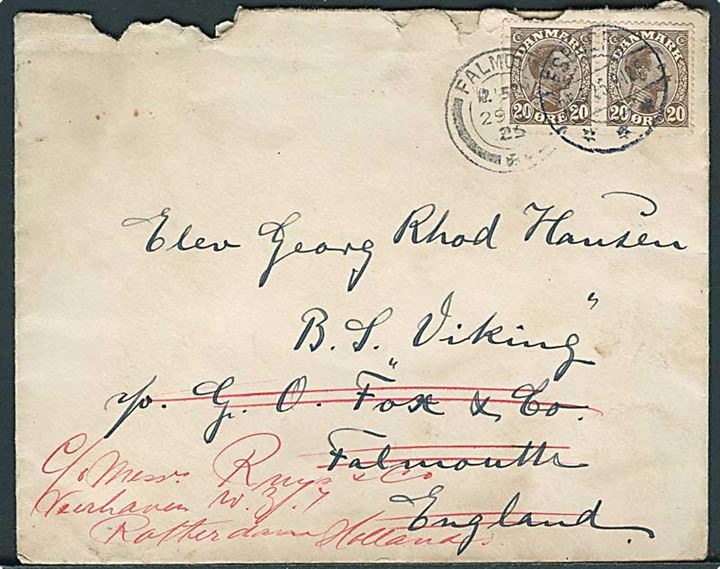 DANMARK DANMARK
20 ØRE 20 20 ØRE 20
FALMOU
29
25
Elev Georg Rhod Hansen
B. S. "Viking"
c/o. G. O. Fox & Co.
Falmouth
England.
C/o Messrs Ruys & Co
Veerhaven W. Z. 7
Rotterdam Holland